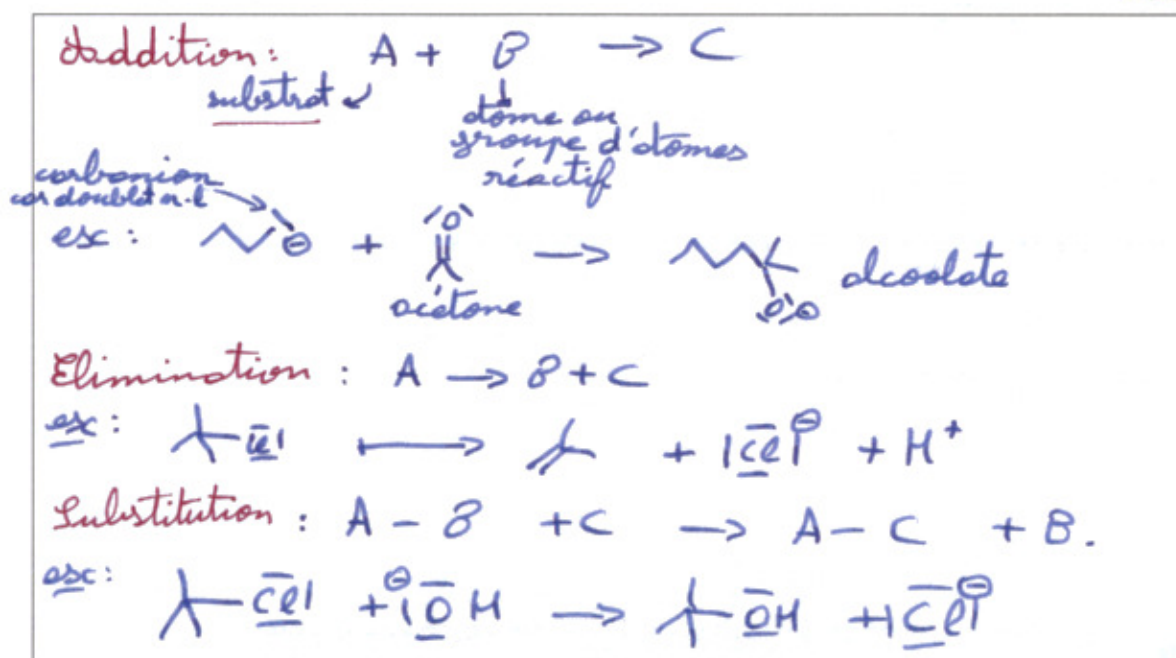 Addition : A + B → C
substrat
atome ou
groupe d'atomes
réactif
carbanion
car doublet n.l
ex : ⊖ + |O| →
alcoolate
acétone
|O| ⊖
Elimination : A → B + C
ex : Cl| → + |Cl| ⊖ + H⁺
Substitution : A - B + C → A - C + B.
ex : Cl| + ⊖ |OH → OH + |Cl| ⊖